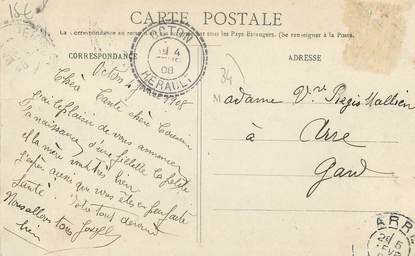 15€
CARTE POSTALE
La Correspondance au recto n'est pas acceptée par tous les Pays Etrangers. (Se renseigner à la Poste.)
CORRESPONDANCE
ADRESSE
OCTON
4
08
HERAULT
34
Octon 4 1908
Chère Tante chère Cousine
j'ai le plaisir de vous annoncer
la naissance d'une fillette la petite
et la mère vont très bien
j'espère aussi que vous êtes en parfaite
Santé
Nous allons tous
bien
M
Madame Vve
à
Arre
Gard
ARRE
5